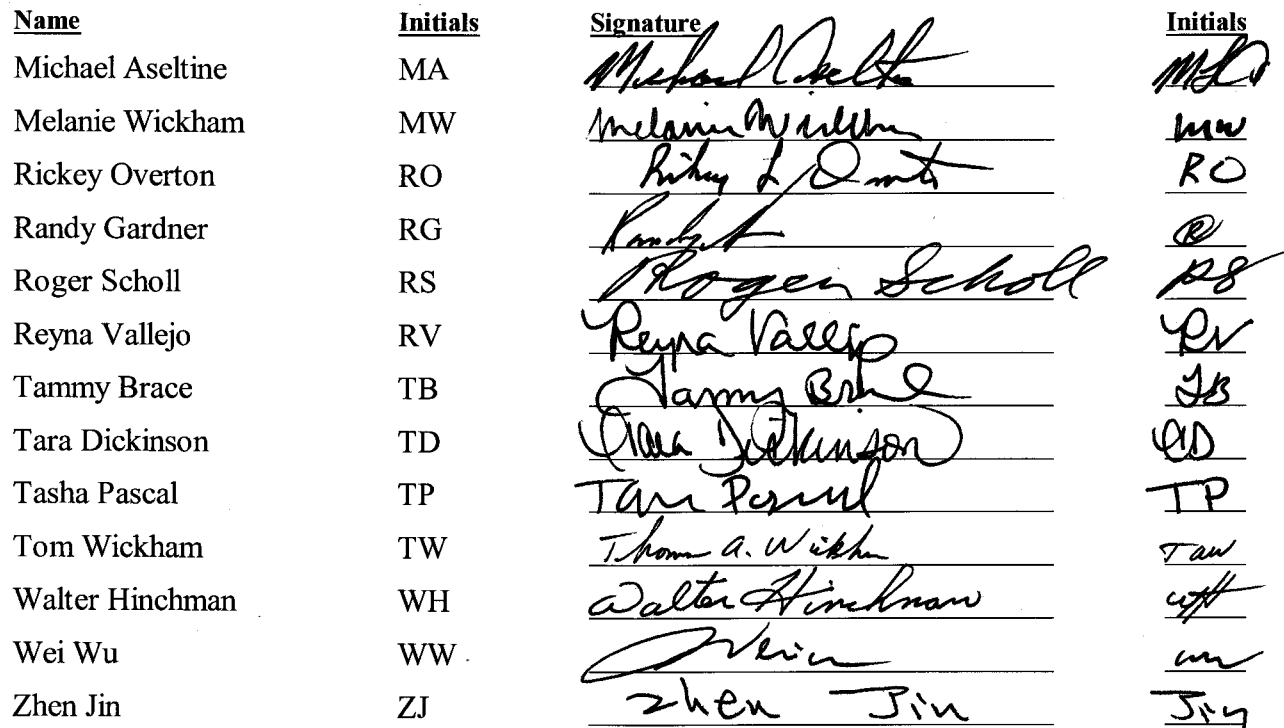 Name Initials Signature Initials
Michael Aseltine MA Michael Aseltine
Melanie Wickham MW Melanie Wickham mw
Rickey Overton RO L RO
Randy Gardner RG Randy
Roger Scholl RS Roger Scholl RS
Reyna Vallejo RV Reyna Vallejo RV
Tammy Brace TB Tammy Brace TB
Tara Dickinson TD Tara Dickinson TD
Tasha Pascal TP Pascal TP
Tom Wickham TW Thomas A. Wickham TAW
Walter Hinchman WH Walter Hinchman WH
Wei Wu WW
Zhen Jin ZJ Zhen Jin Jin